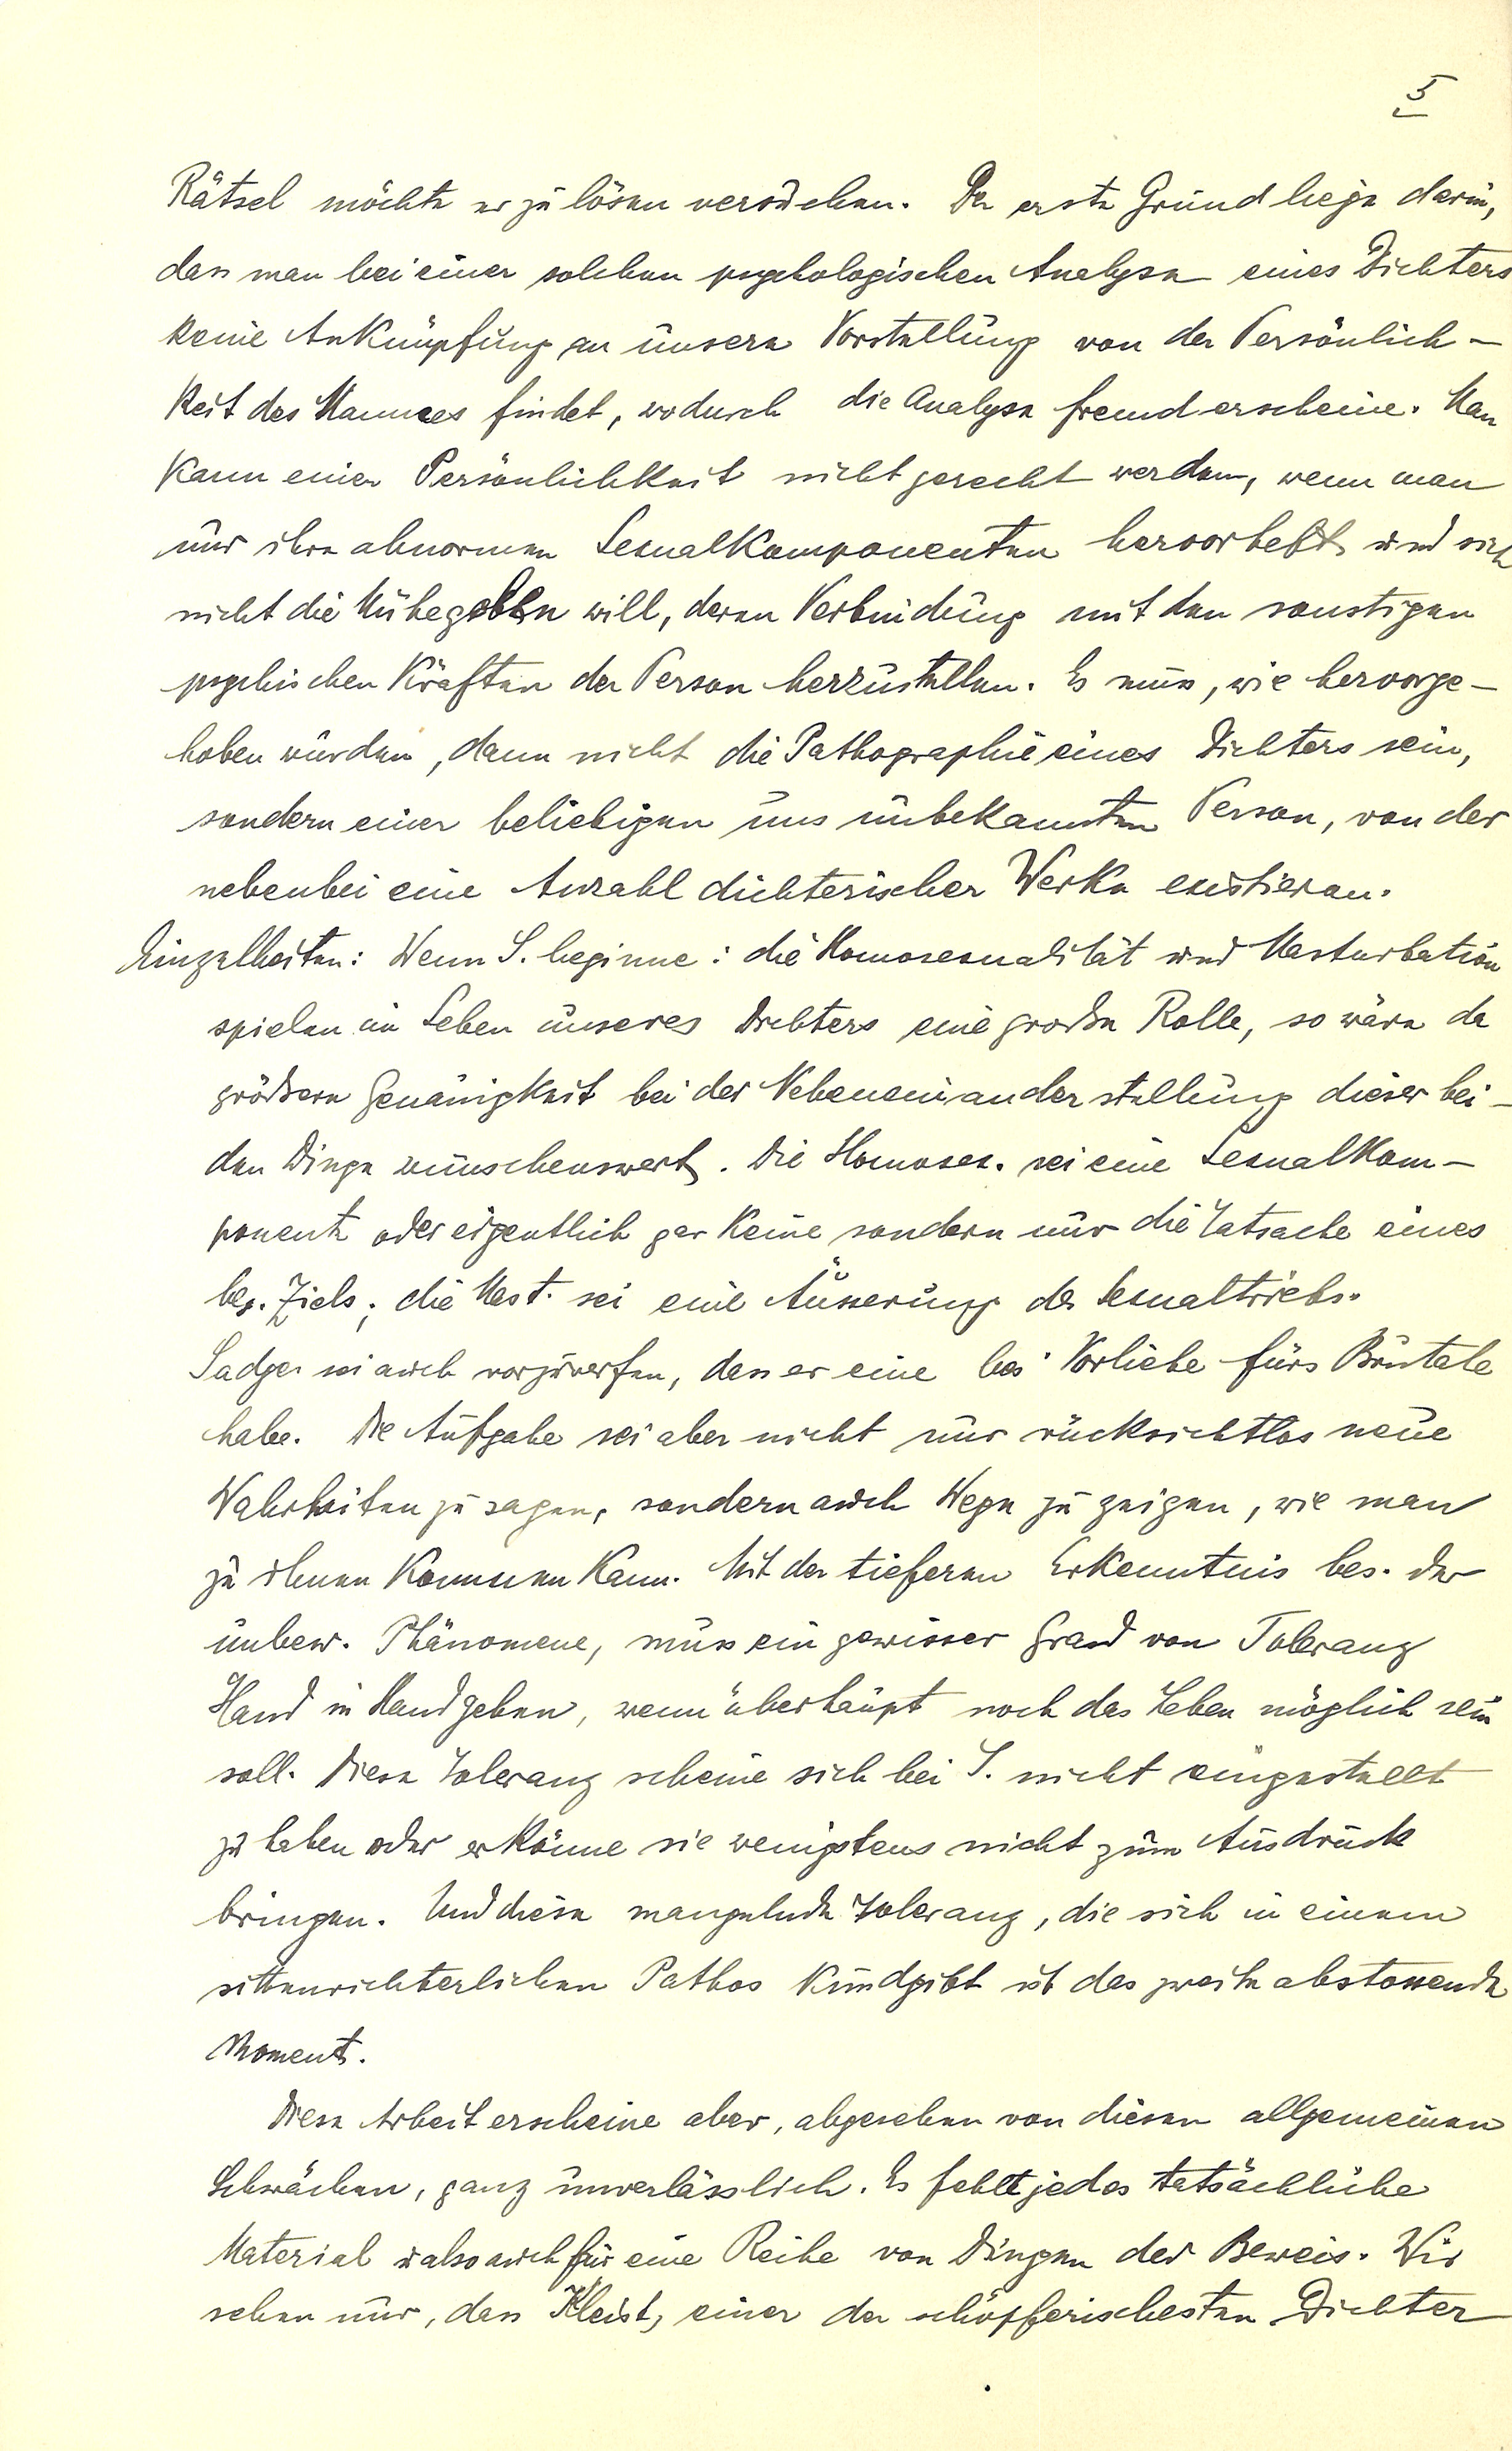 5
Rätsel möchte er zu lösen versuchen. Der erste Grund liege darin,
dass man bei einer solchen psychologischen Analyse eines Dichters
keine Anknüpfung an unsere Vorstellung von der Persönlich-
keit des Mannes findet, wodurch die Analyse fremd erscheine. Man
kann einer Persönlichkeit nicht gerecht werden, wenn man
nur ihre abnormen Sexualkomponenten hervorhebt und sich
nicht die Mühe geben will, deren Verbindung mit den sonstigen
psychischen Kräften der Person herzustellen. Es muss, wie hervorge-
hoben wurden, dann nicht die Pathographie eines Dichters sein,
sondern einer beliebigen uns unbekannten Person, von der
nebenbei eine Anzahl dichterischer Werke existieren.
Einzelheiten: Wenn S. beginne: die Homosexualität und Masturbation
spielen im Leben unseres Dichters eine große Rolle, so wäre da
größere Genauigkeit bei der Nebeneinanderstellung dieser bei-
den Dinge wünschenswert. Die Homosex. sei eine Sexualkom-
ponente oder eigentlich gar keine sondern nur die Tatsache eines
bes. Ziels; die Mast. sei eine Äusserung des Sexualtriebs.
Sadger sei auch vorzuwerfen, dass er eine bes. Vorliebe fürs Brutale
habe. Die Aufgabe sei aber nicht nur rücksichtlos neue
Wahrheiten zu sagen, sondern auch Wege zu zeigen, wie man
zu ihnen kommen kann. Mit der tieferen Erkenntnis bes. der
unbew. Phänomene, muss ein gewisser Grad von Toleranz
Hand in Hand gehen, wenn überhaupt noch das Leben möglich sein
soll. Diese Toleranz scheine sich bei S. nicht eingestellt
zu haben oder er könne sie wenigstens nicht zum Ausdruck
bringen. Und diese mangelnde Toleranz, die sich in einem
sittenrichterlichen Pathos kundgibt ist das zweite abstossende
Moment.
Diese Arbeit erscheine aber, abgesehen von diesen allgemeinen
Schwächen, ganz unverlässlich. Es fehlt jedes tatsächliche
Material u also auch für eine Reihe von Dingen der Beweis. Wir
sehen nur, dass Kleist, einer der schöpferischesten Dichter